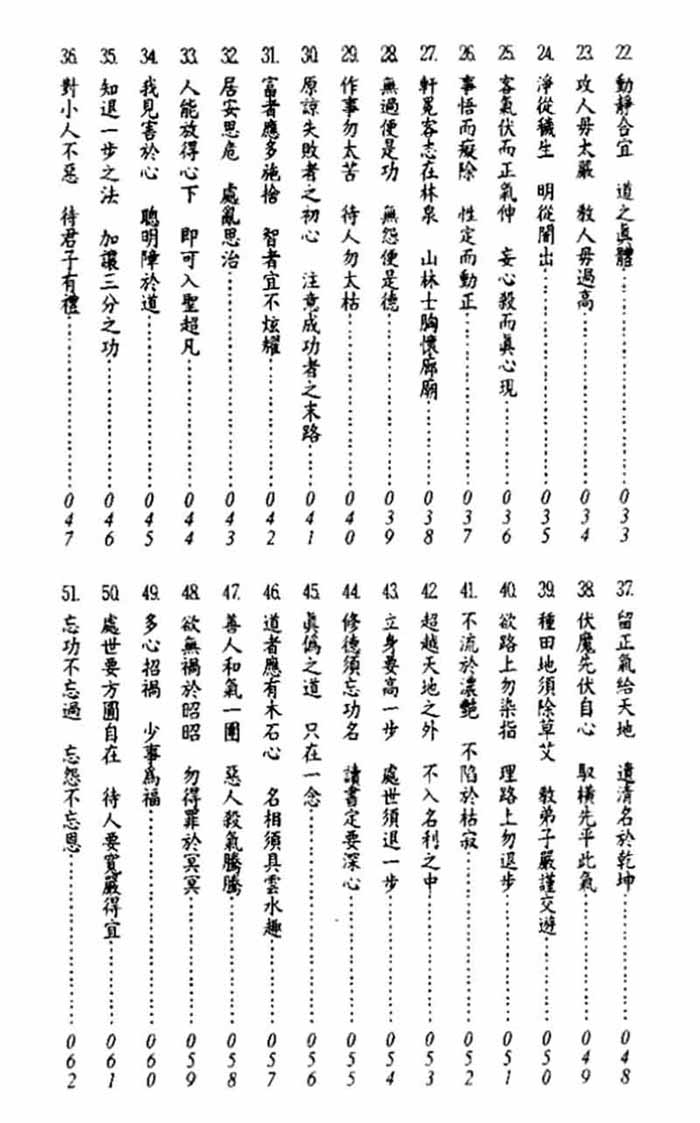 22. 動靜合宜 道之眞體…………033
23. 攻人毋太嚴 教人毋過高…………034
24. 淨從穢生 明從闇出…………035
25. 客氣伏而正氣伸 妄心殺而眞心現…………036
26. 事悟而癡除 性定而動正…………037
27. 軒冕客志在林泉 山林士胸懷廊廟…………038
28. 無過便是功 無怨便是德…………039
29. 作事勿太苦 待人勿太枯…………040
30. 原諒失敗者之初心 注意成功者之末路…………041
31. 富者應多施捨 智者宜不炫耀…………042
32. 居安思危 處亂思治…………043
33. 人能放得心下 即可入聖超凡…………044
34. 我見害於心 聰明障於道…………045
35. 知退一步之法 加讓三分之功…………046
36. 對小人不惡 待君子有禮…………047
37. 留正氣給天地 遺清名於乾坤…………048
38. 伏魔先伏自心 馭橫先平此氣…………049
39. 種田地須除草艾 教弟子嚴謹交遊…………050
40. 欲路上勿染指 理路上勿退步…………051
41. 不流於濃艷 不陷於枯寂…………052
42. 超越天地之外 不入名利之中…………053
43. 立身要高一步 處世須退一步…………054
44. 修德須忘功名 讀書定要深心…………055
45. 眞僞之道 只在一念…………056
46. 道者應有木石心 名相須具雲水趣…………057
47. 善人和氣一團 惡人殺氣騰騰…………058
48. 欲無禍於昭昭 勿得罪於冥冥…………059
49. 多心招禍 少事爲福…………060
50. 處世要方圓自在 待人要寬嚴得宜…………061
51. 忘功不忘過 忘怨不忘恩…………062